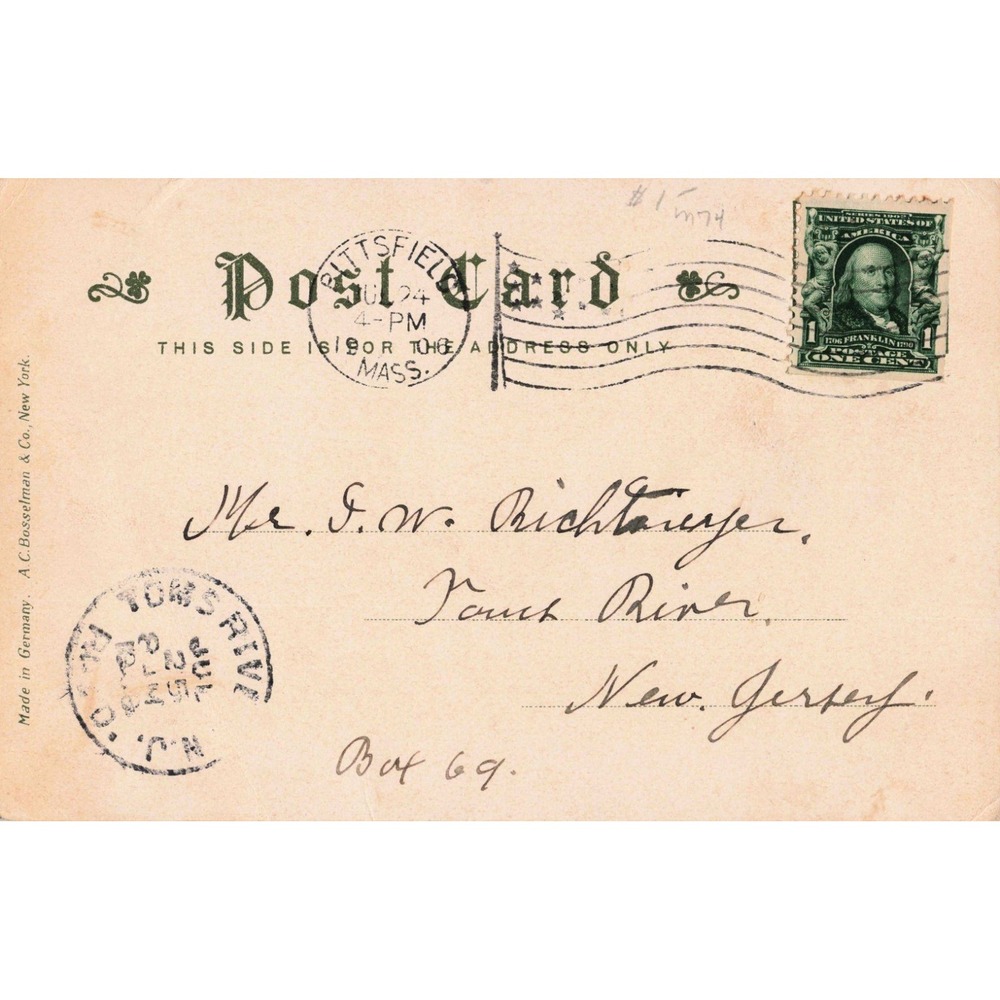 #1-
m74
Post Card
THIS SIDE IS FOR THE ADDRESS ONLY
PITTSFIELD
JUL 24
4-PM
19 06
MASS.
SERIES 1902
UNITED STATES OF
AMERICA
1 1
1706 FRANKLIN 1790
POSTAGE
ONE CENT
Made in Germany. A.C. Bosselman & Co., New York.
Mr.
W. Richtmyer,
Toms River.
New. Jersey.
Box 69.
TOMS RIVE
REC'D.
JUL
25
N.J.